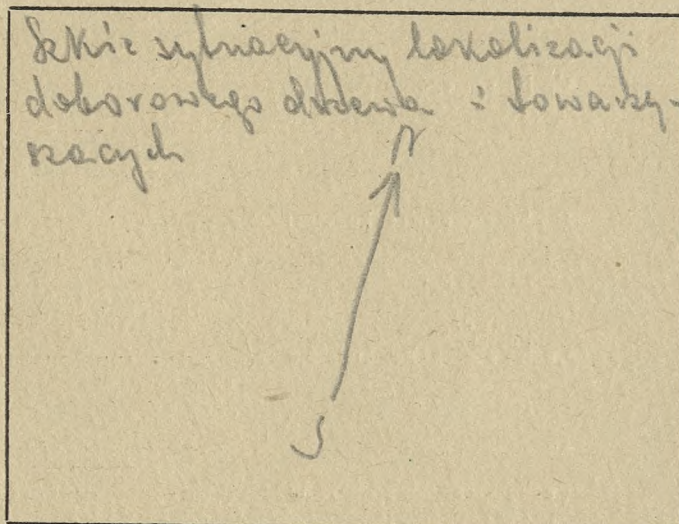 Szkic sytuacyjny lokalizacji
doborowego drzewa i towarzy-
szących
N
S